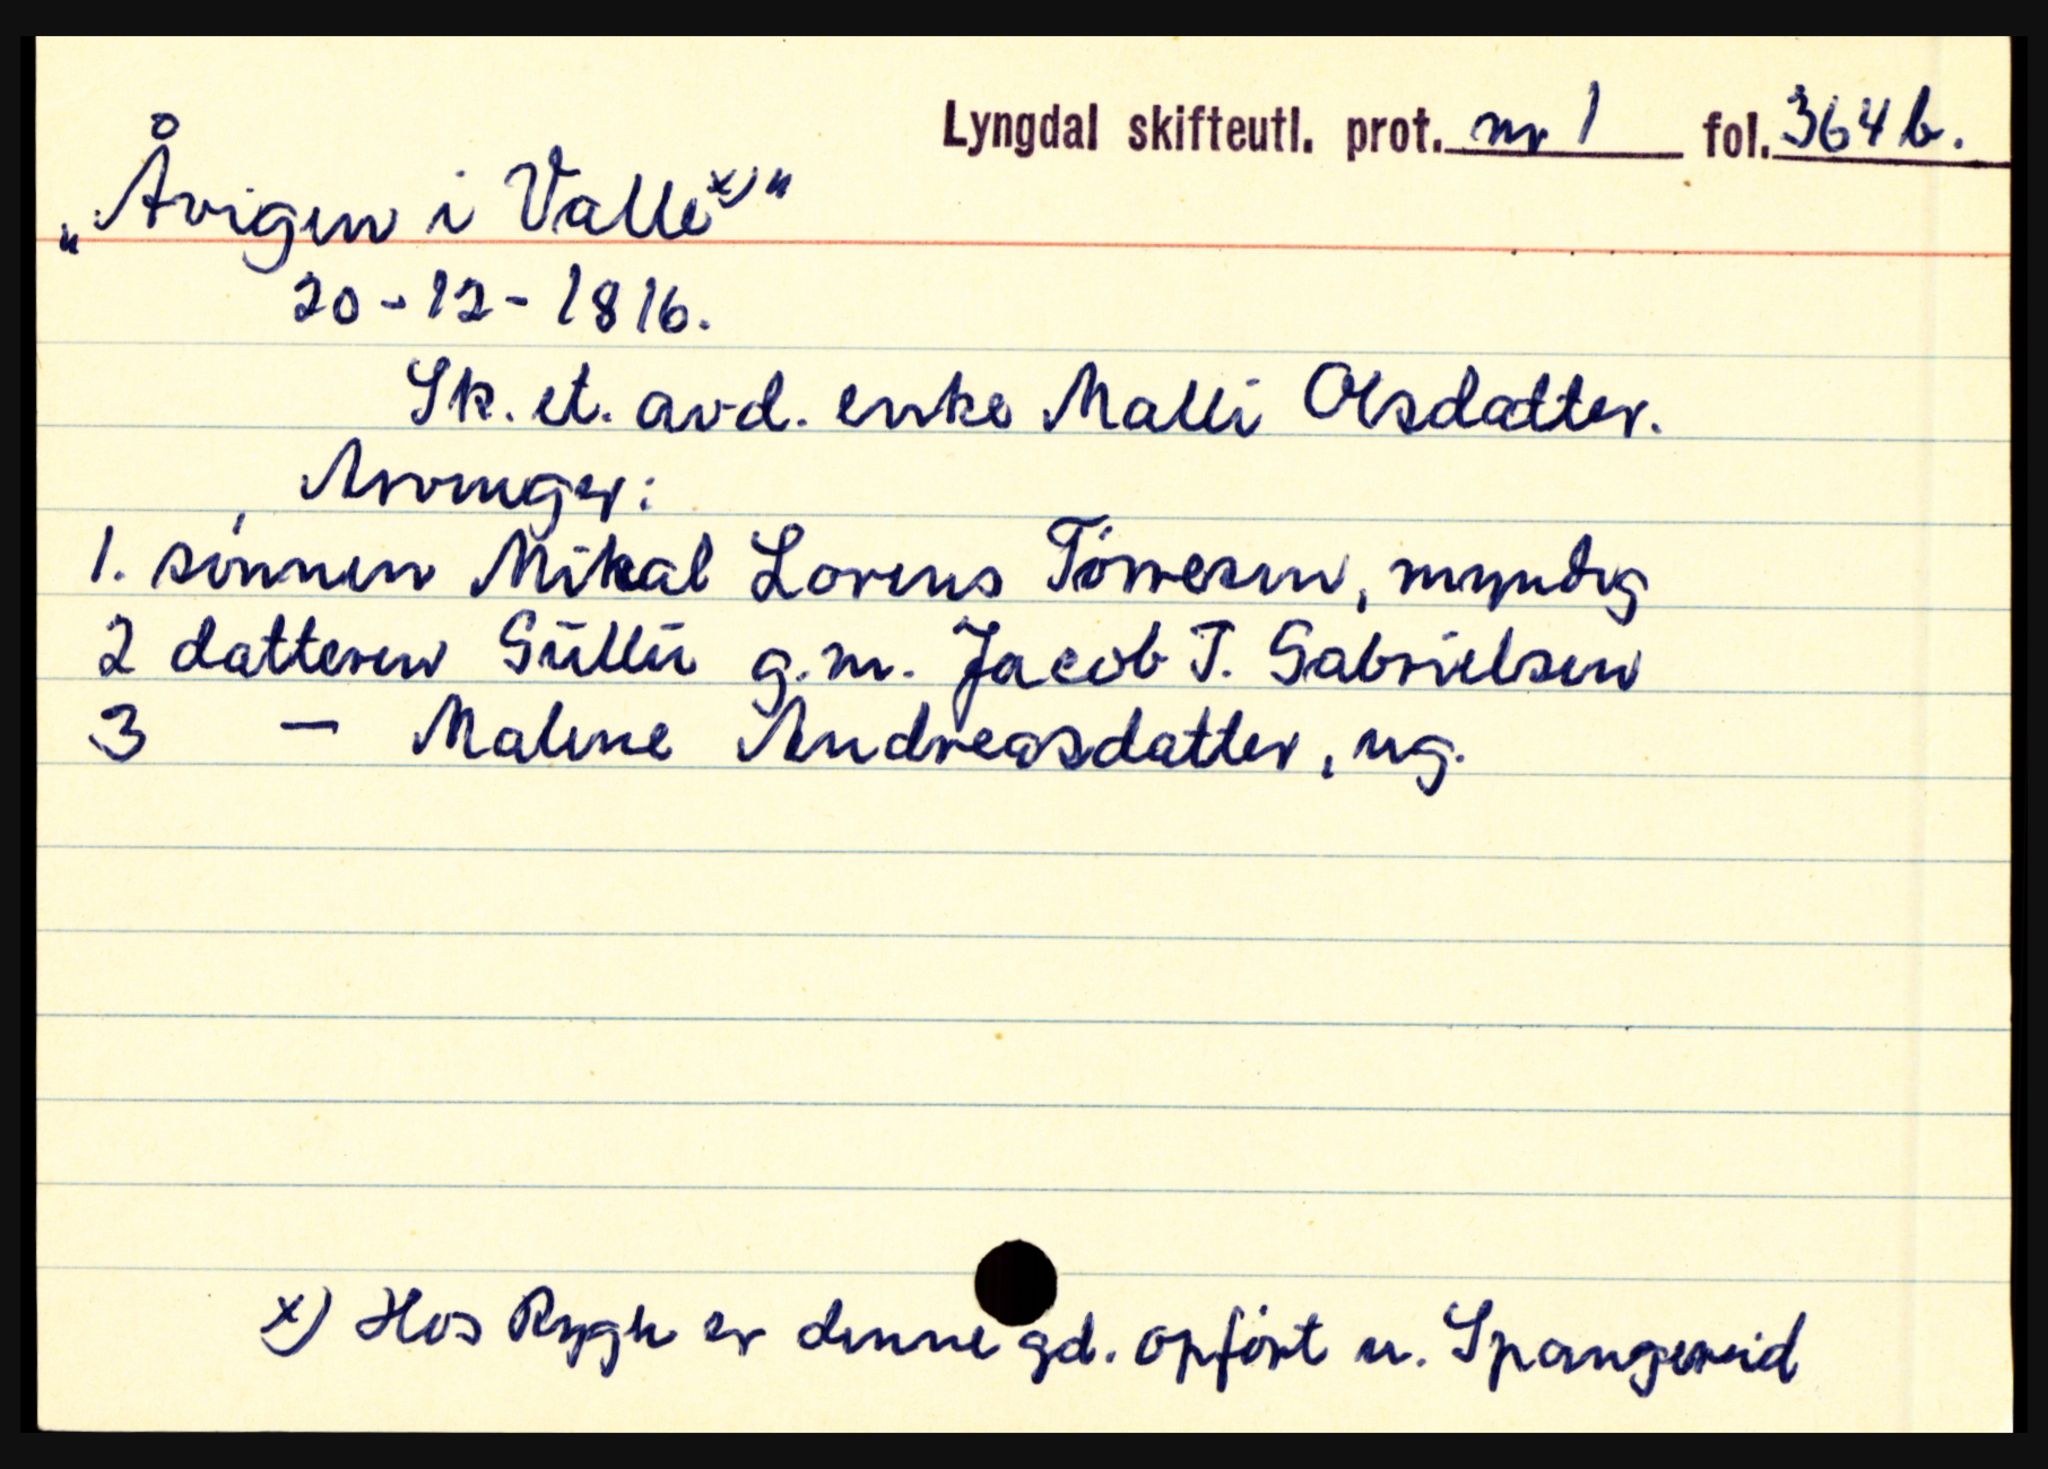 Lyngdal skifteutl. prot. nr 1 fol. 364 b.
„Åvigen i Valle x)"
20-12-1816.
Sk. et. avd. enke Malli Olsdatter.
Arvinger:
1. sønnen Mikal Lorens Tørresen, myndig
2 datteren Gülli g.m. Jacob T. Gabrielsen
3 — Malene Andreasdatter, ug.
x) Hos Rygh er denne gd. opført u. Spangereid